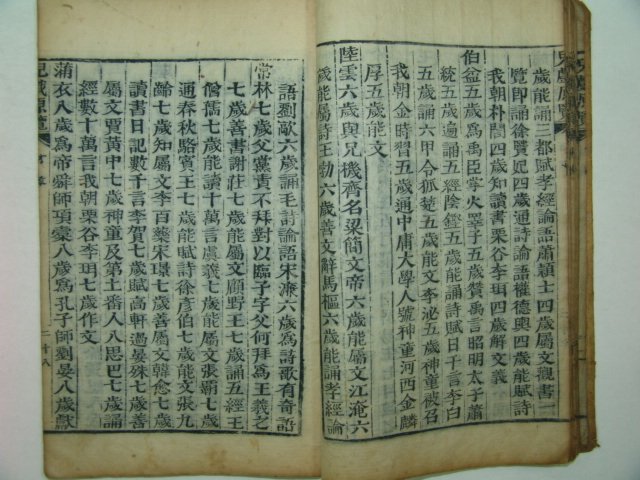 歲能誦三都賦孝經論語蕭穎士四歲屬文觀書一
覽即誦徐賢妃四歲通詩論語權德輿四歲能賦詩
我朝朴誾四歲知讀書栗谷李珥四歲解文義
伯益五歲爲禹臣掌火睪子五歲贊禹言昭明太子蕭
統五歲遍誦五經陰鏗五歲能誦詩賦日千言李白
五歲誦六甲令狐楚五歲能文李泌五歲神童被召
我朝金時習五歲通中庸大學人號神童河西金麟
厚五歲能文
陸雲六歲與兄機齊名梁簡文帝六歲能屬文江淹六
歲能屬詩王勃六歲善文辭馬樞六歲能誦孝經論
語劉歊六歲誦毛詩論語宋濂六歲爲詩歌有奇語
常林七歲父黨責不拜對以臨子字父何拜爲王羲之
七歲善書謝莊七歲能屬文顧野王七歲誦五經王
僧孺七歲能讀十萬言虞羲七歲能屬文張霸七歲
通春秋駱賓王七歲能賦詩徐彥伯七歲能文張九
齡七歲知屬文李百藥宋璟七歲善屬文韓愈七歲
讀書日記數千言李賀七歲賦高軒過晏殊七歲善
屬文賈黃中七歲神童及第土番人八思巴七歲誦
經數十萬言我朝栗谷李珥七歲作文
蒲衣八歲爲帝舜師項橐八歲爲孔子師劉晏八歲獻